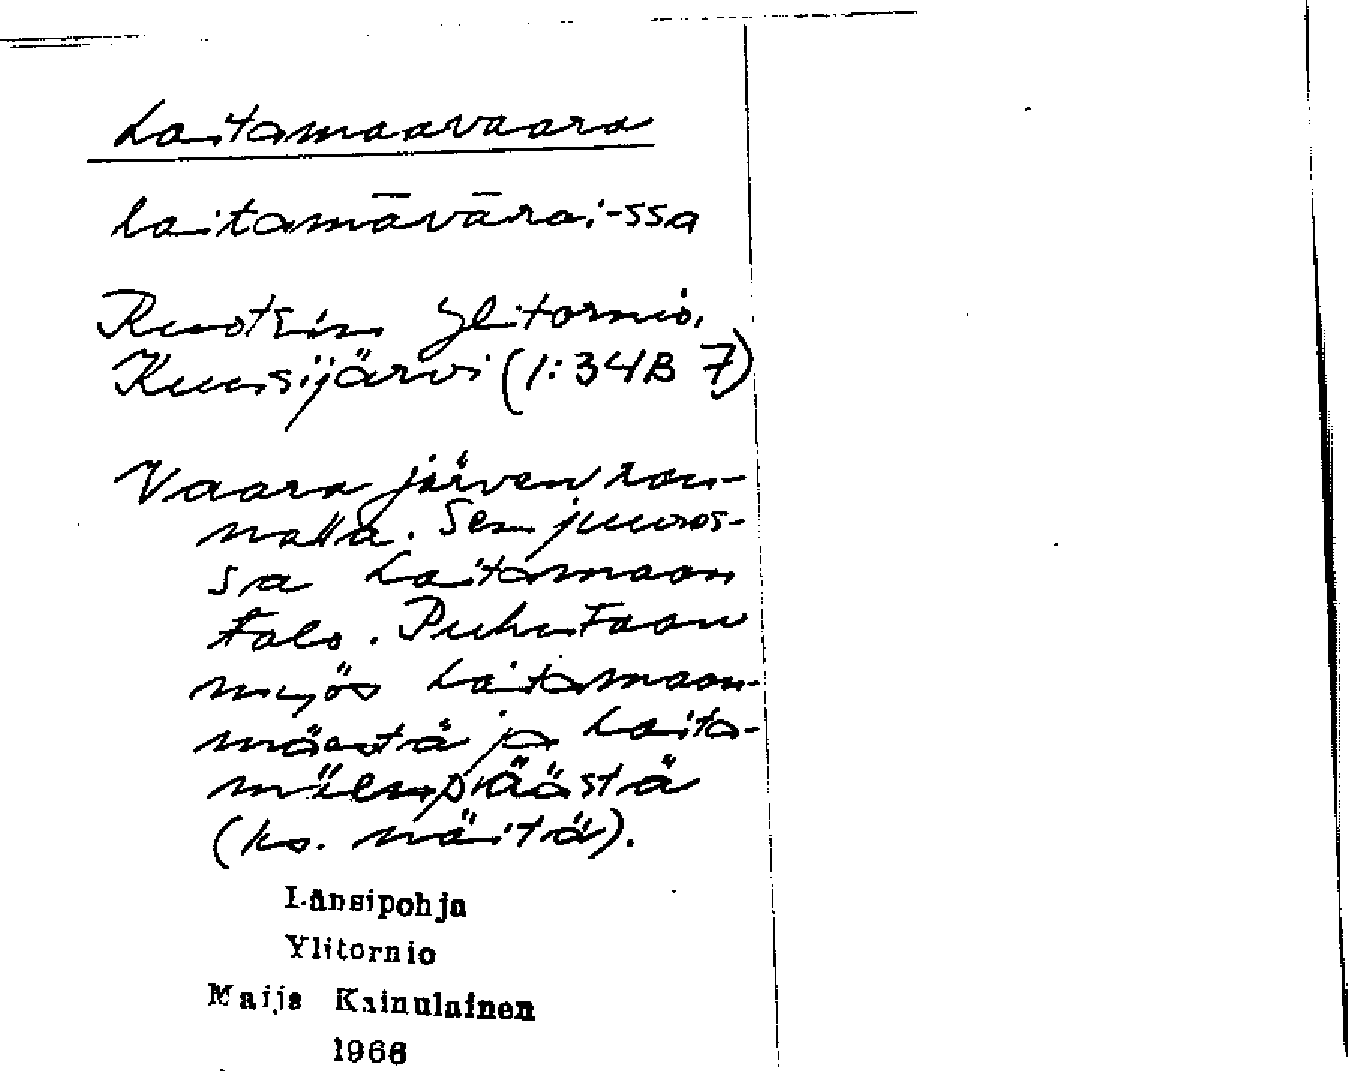 Laitamaavaara
laitamāvārai-ssa
Ruotsin Ylitornio,
Kuusijärvi (1:34B 7)
Vaara järven ran-
nalla. Sen juures-
sa Laitamaan
talo. Puhutaan
myös Laitamaan-
mäestä ja Laita-
mäenpäästä
(ks. näitä).
Länsipohja
Ylitornio
Maija Kainulainen
1966